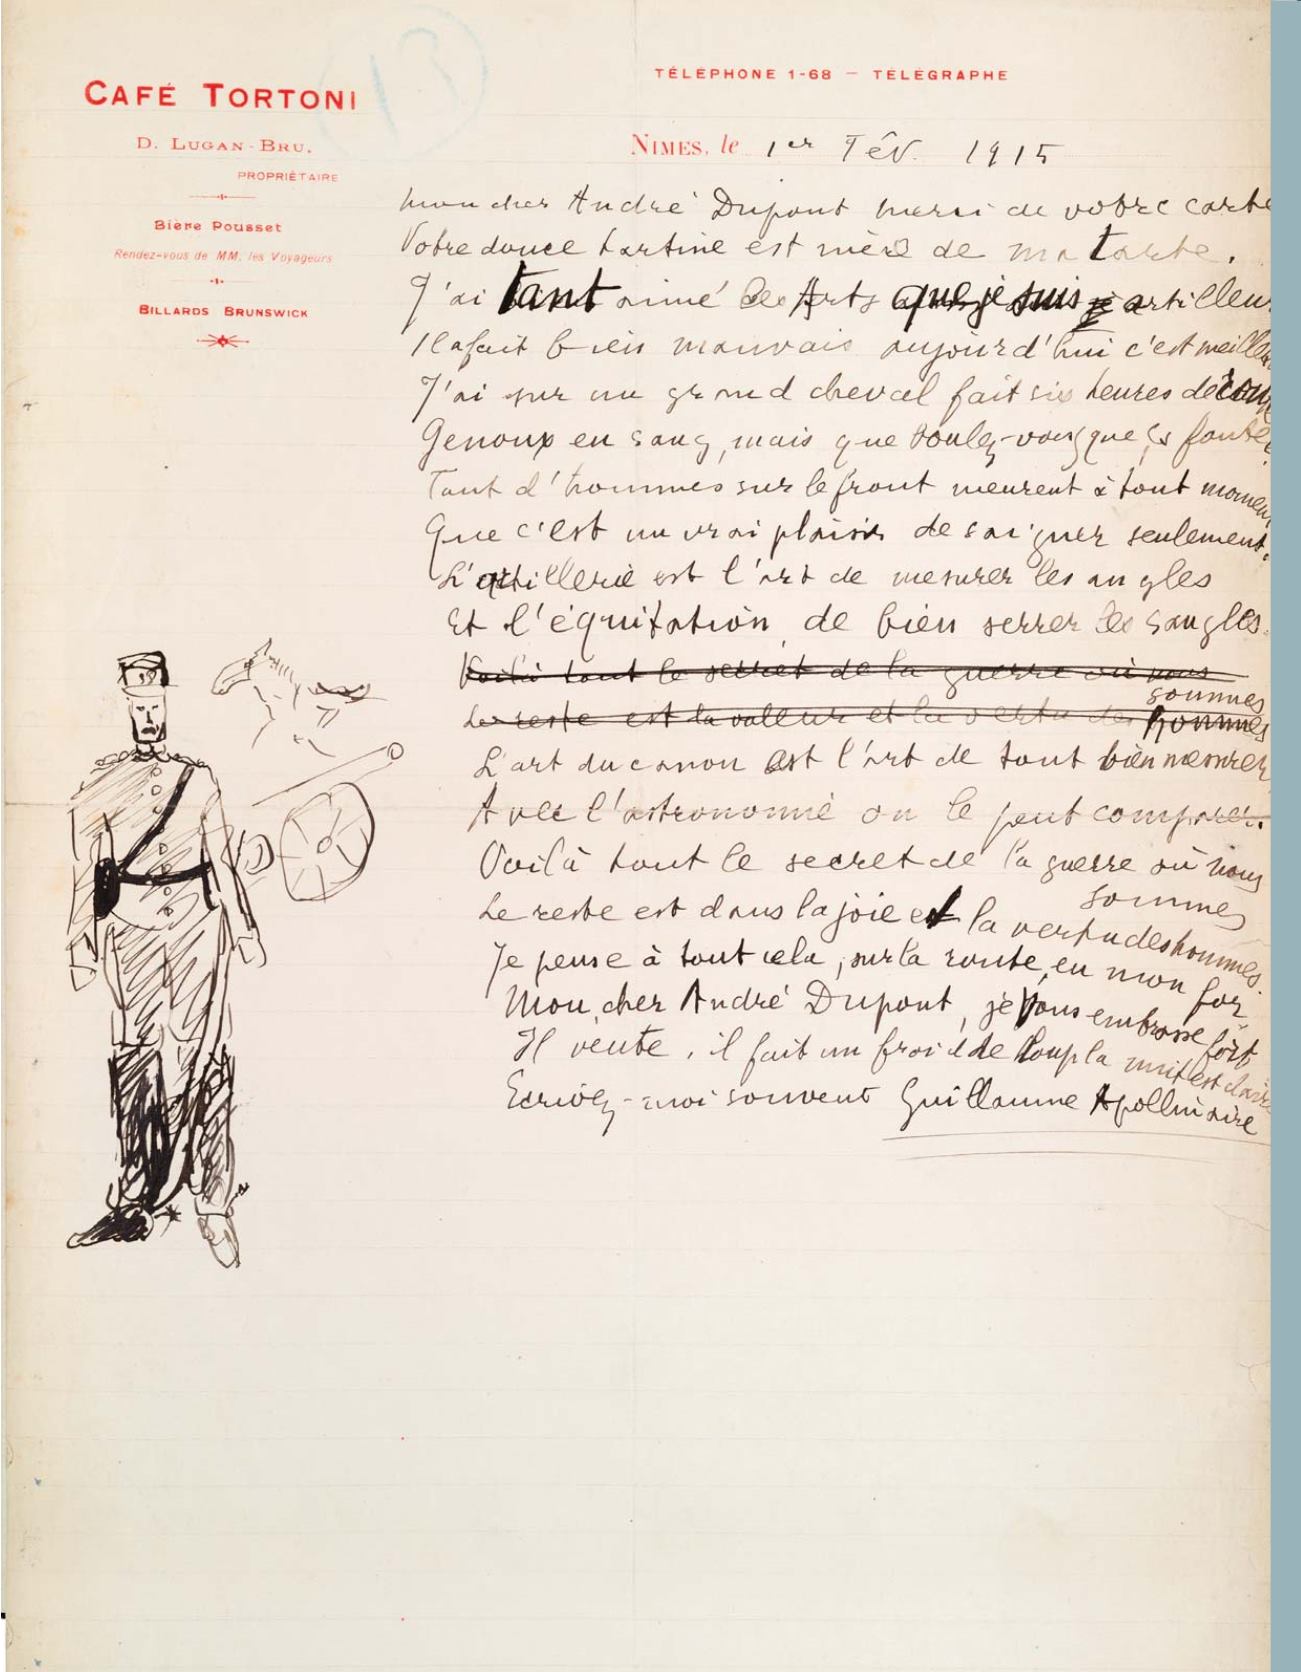 CAFÉ TORTONI
D. LUGAN-BRU.
PROPRIÉTAIRE
Bière Pousset
Rendez-vous de MM. les Voyageurs
BILLARDS BRUNSWICK
TÉLÉPHONE 1-68 — TÉLÉGRAPHE
NIMES, le 1er Fév. 1915
Mon cher André Dupont merci de votre carte
Votre douce tartine est mère de ma tarte.
J'ai tant aimé les Arts que je suis artilleur
Il a fait bien mauvais aujourd'hui c'est meilleur
J'ai sur un grand cheval fait six heures de
Genoux en sang, mais que voulez-vous que ça foute
Tant d'hommes sur le front meurent à tout moment
Que c'est un vrai plaisir de saigner seulement.
L'artillerie est l'art de mesurer les angles
Et l'équitation de bien serrer les sangles.
Voilà tout le secret de la guerre où nous
sommes
Le reste est la valeur et la vertu des hommes
L'art du canon est l'art de tout bien mesurer
Avec l'astronomie on le peut comparer.
Voilà tout le secret de la guerre où nous
sommes
Le reste est dans la joie et la vertu des hommes.
Je pense à tout cela, sur la route, en mon for
Mon cher André Dupont, je vous embrasse fort
Il vente, il fait un froid de loup la nuit est claire
Ecrivez-moi souvent Guillaume Apollinaire